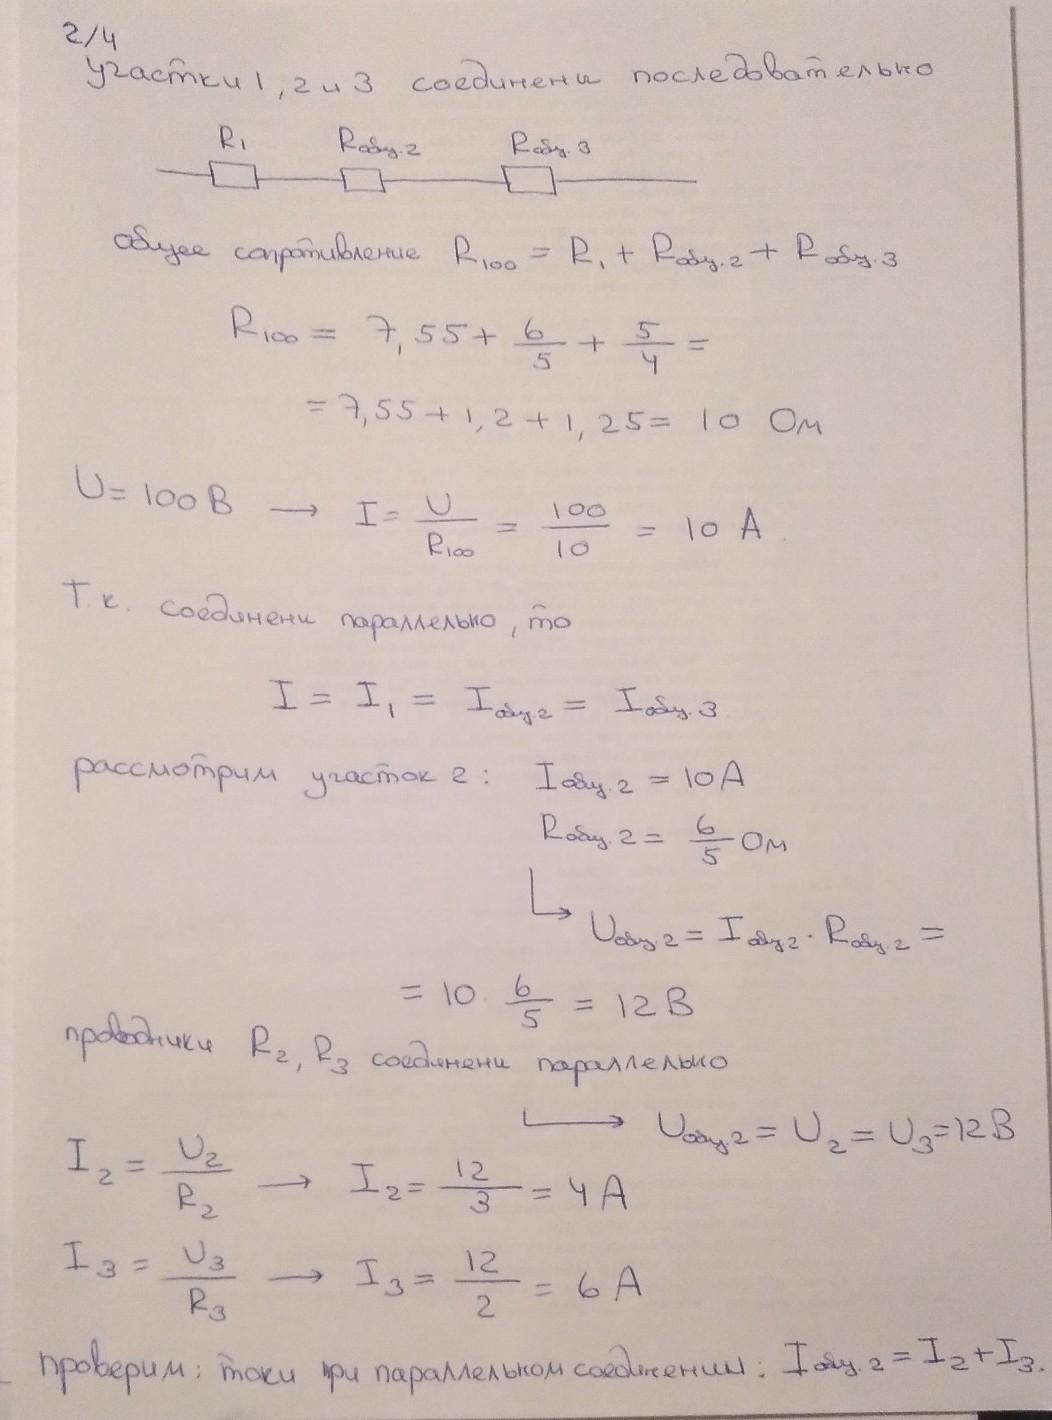 2/4
участки 1, 2 и 3 соединени последовательно
R₁ Rобщ.2 Rобщ.3
общее сопротивление R₁₀₀ = R₁ + Rобщ.2 + Rобщ.3
R₁₀₀ = 7,55 + 6/5 + 5/4 =
= 7,55 + 1,2 + 1,25 = 10 Ом
U = 100 В → I = U/R₁₀₀ = 100/10 = 10 А
Т.к. соединени параллелько, то
I = I₁ = Iобщ.2 = Iобщ.3
рассмотрим участок 2: Iобщ.2 = 10 А
Rобщ.2 = 6/5 Ом
↳ Uобщ.2 = Iобщ2 · Rобщ.2 =
= 10 · 6/5 = 12 В
проводники R₂, R₃ соединени параллелько
↳ Uобщ.2 = U₂ = U₃ = 12 В
I₂ = U₂/R₂ → I₂ = 12/3 = 4 А
I₃ = U₃/R₃ → I₃ = 12/2 = 6 А
проверим: токи при параллельком соединении: Iобщ.2 = I₂ + I₃.